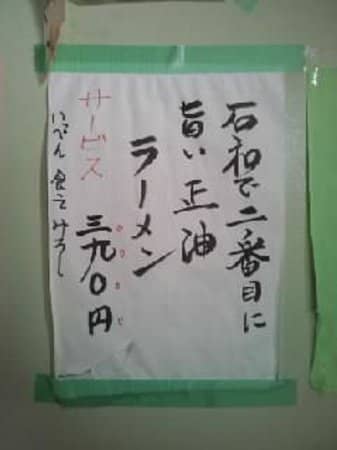 石和で二番目に
旨い正油
ラーメン
サービス 三九〇円
いっぺん食してみろし